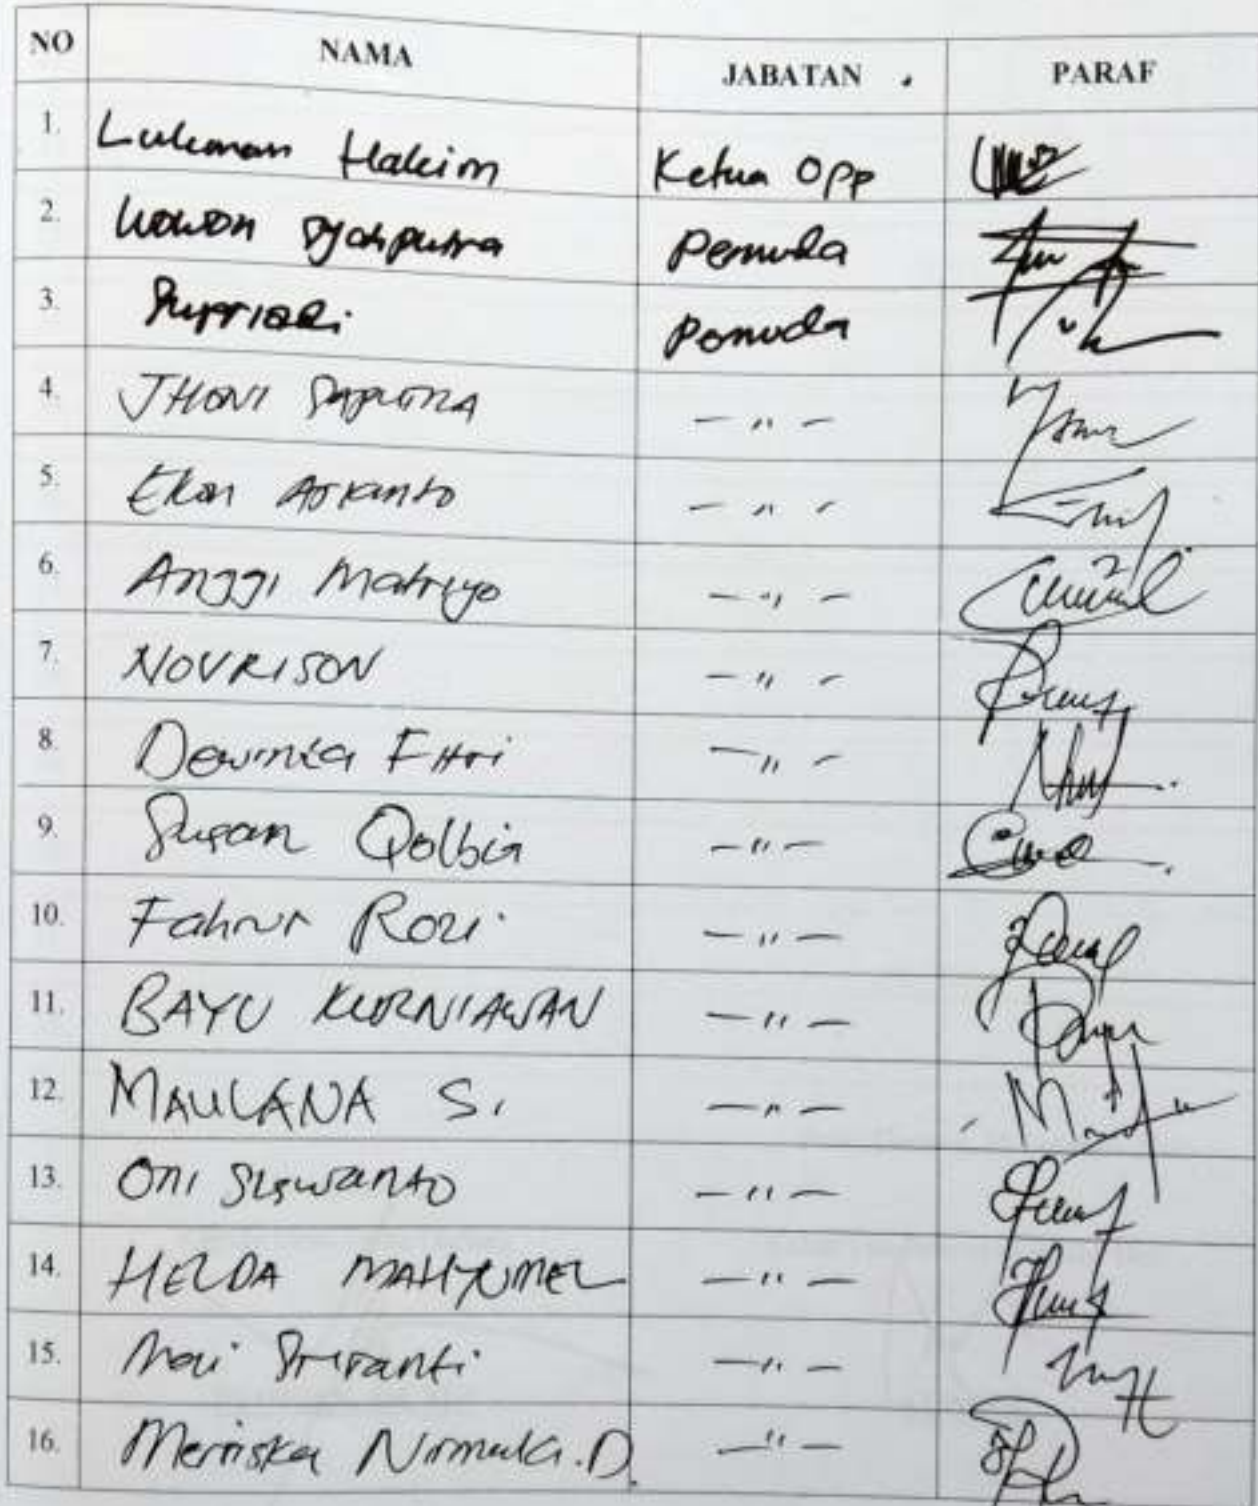 NO NAMA JABATAN PARAF
1. Lukman Hakim Ketua OPP
2. Wawan Syahputra Pemuda
3. Supriadi Pemuda
4. JHONI SAPUTRA - " -
5. Ekon Arianto - " -
6. Anggi Matriyo - " -
7. NOVRISON - " -
8. Dewinta Fitri - " -
9. Susan Qolbia - " -
10. Fahrur Rozi - " -
11. BAYU KURNIAWAN - " -
12. MAULANA S. - " -
13. Oni Siswanto - " -
14. HELDA MAHYUMEL - " -
15. Mai Sriranti - " -
16. Meriska Nirmala.D. - " -